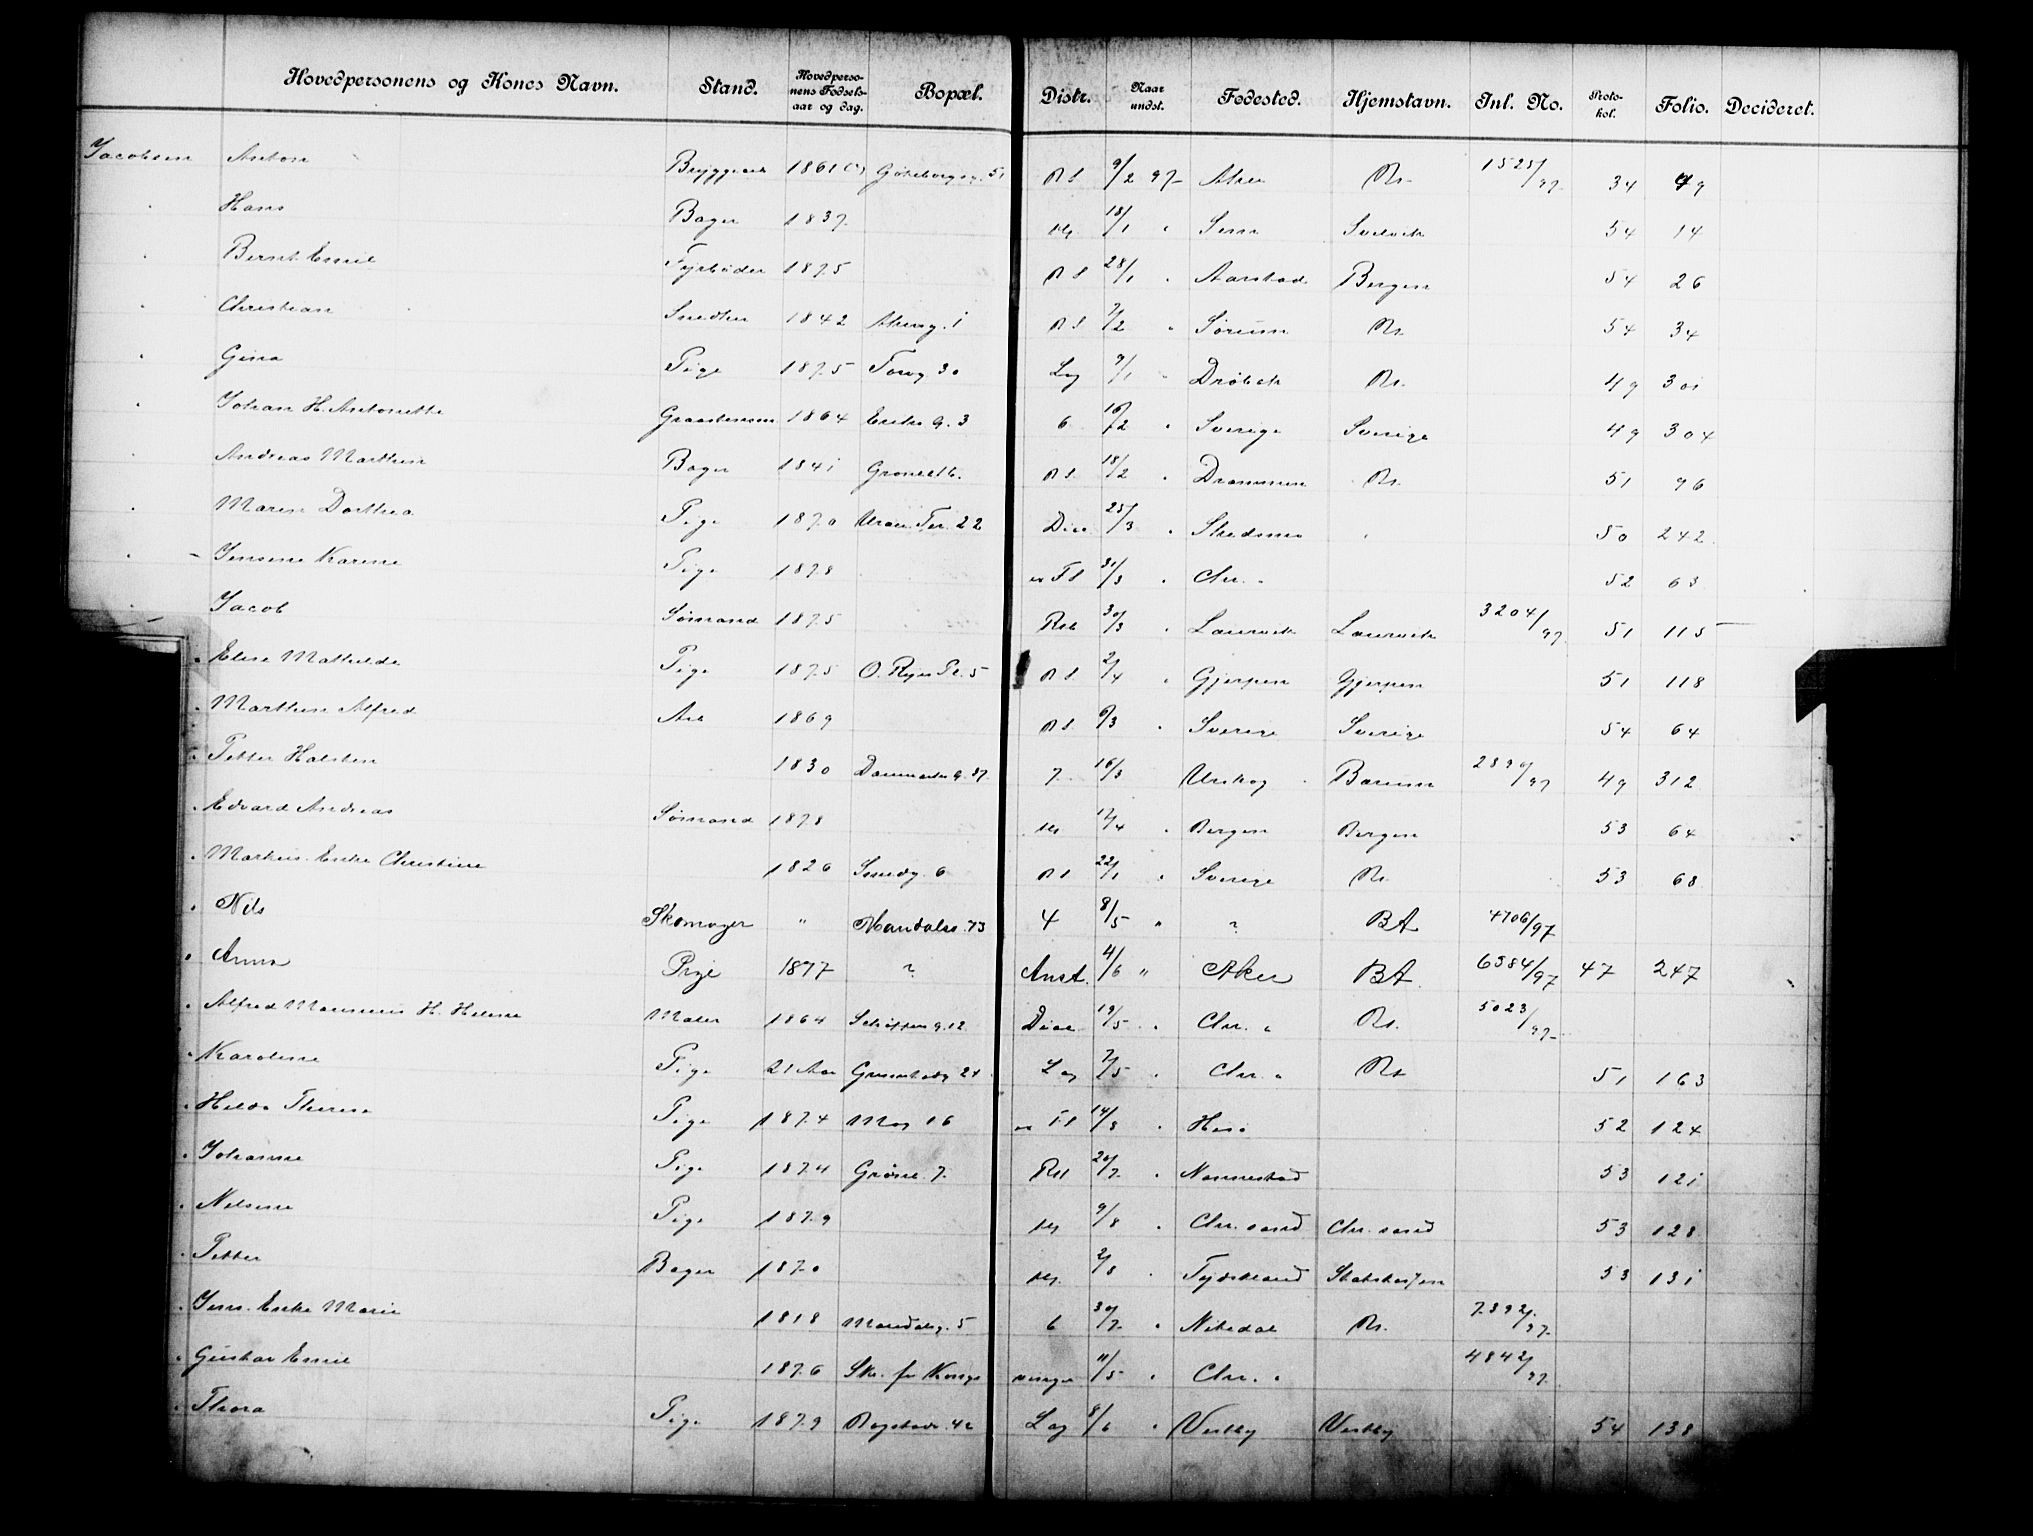 Hovedpersonens og Kones Navn. Stand. Hovedperso-nens Fødsels-aar og dag. Bopæl. Distr. Naar undst. Fødested. Hjemstavn. Inl. No. Proto-kol. Folio. Decideret.
Jacobsen Anton 1861 Göteborgsg. 51 Rs 9/2 97 Aker Kr. 1525/97 34 49
" Hans Bager 1837 18/1 " Sem Svelvik 54 14
" Bernt Emil Fyrbøder 1875 Rs 28/1 " Aarstad Bergen 54 26
" Christian Snedker 1842 Akersg. 1 Rs 7/2 " Sørum Kr. 54 34
" Gina Pige 1875 Torvg 30 Lag 9/1 " Drøbak Kr. 49 301
" Johan H. Antonette Graastensm 1864 Enke G. 3 6 16/2 " Sverige Sverige 49 304
" Andreas Marthin Bager 1841 Rs 18/2 " Drammen Kr. 51 96
" Maren Dorthea Pige 1870 Uran. Ter. 22 Diac 25/3 " Skedsmo " 50 242
" Jensine Karine Pige 1878 31/3 " Chr. a 52 63
" Jacob Sømand 1875 Rst 30/3 " Laurvik Laurvik 3204/97 51 115
" Elise Mathilde Pige 1875 O. Ryes Pl. 5 Rs 2/4 " Gjerpen Gjerpen 51 118
" Marthin Alfred Arb 1869 Rs 6/3 " Sverige Sverige 54 64
" Petter Halsten 1830 Danmarks G. 37 7 16/3 Urskog Bærum 49 312
" Edvard Andreas Sømand 1878 " Bergen Bergen 53 64
" Markus. Enke Christine 1826 Smedg. 6 Rs 22/1 " Sverige Kr. 53 68
" Nils Skomager " Mandalsg. 73 4 8/5 " ? BA 4706/97
" Anna Pige 1877 ? Anst. 4/6 " Aker BA 6584/97 47 247
" Alfred H. Helene Maler 1864 Schøttsen G. 12 Diac 19/5 " Chr. a Kr. 5023/97
" Karoline Pige 21 Aar 24 Lag 7/5 " Chr. a Kr 51 163
" Hilda Therese Pige 1874 16 14/8 " 52 124
" Johanne Pige 1874 Grønl. 7 Rst 20/7 " Nannestad 53 121
" Nilsine Pige 1879 9/8 " Chr. sand Chr. sand 53 128
" Petter Bager 1870 2/8 " Tydskland 53 131
" Jens. Enke Marie 1818 Mandalsg. 5 6 30/7 " Nitedal Kr. 7392/97
" Gustav Emil 1876 Sk. for Kongs vinger 11/5 " Chr. a 4842/97
" Thora Pige 1879 42 Lag 8/6 " Vestby Vestby 54 138